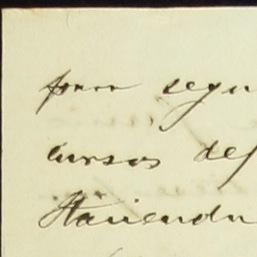 para segu
cursos def
Haciendo